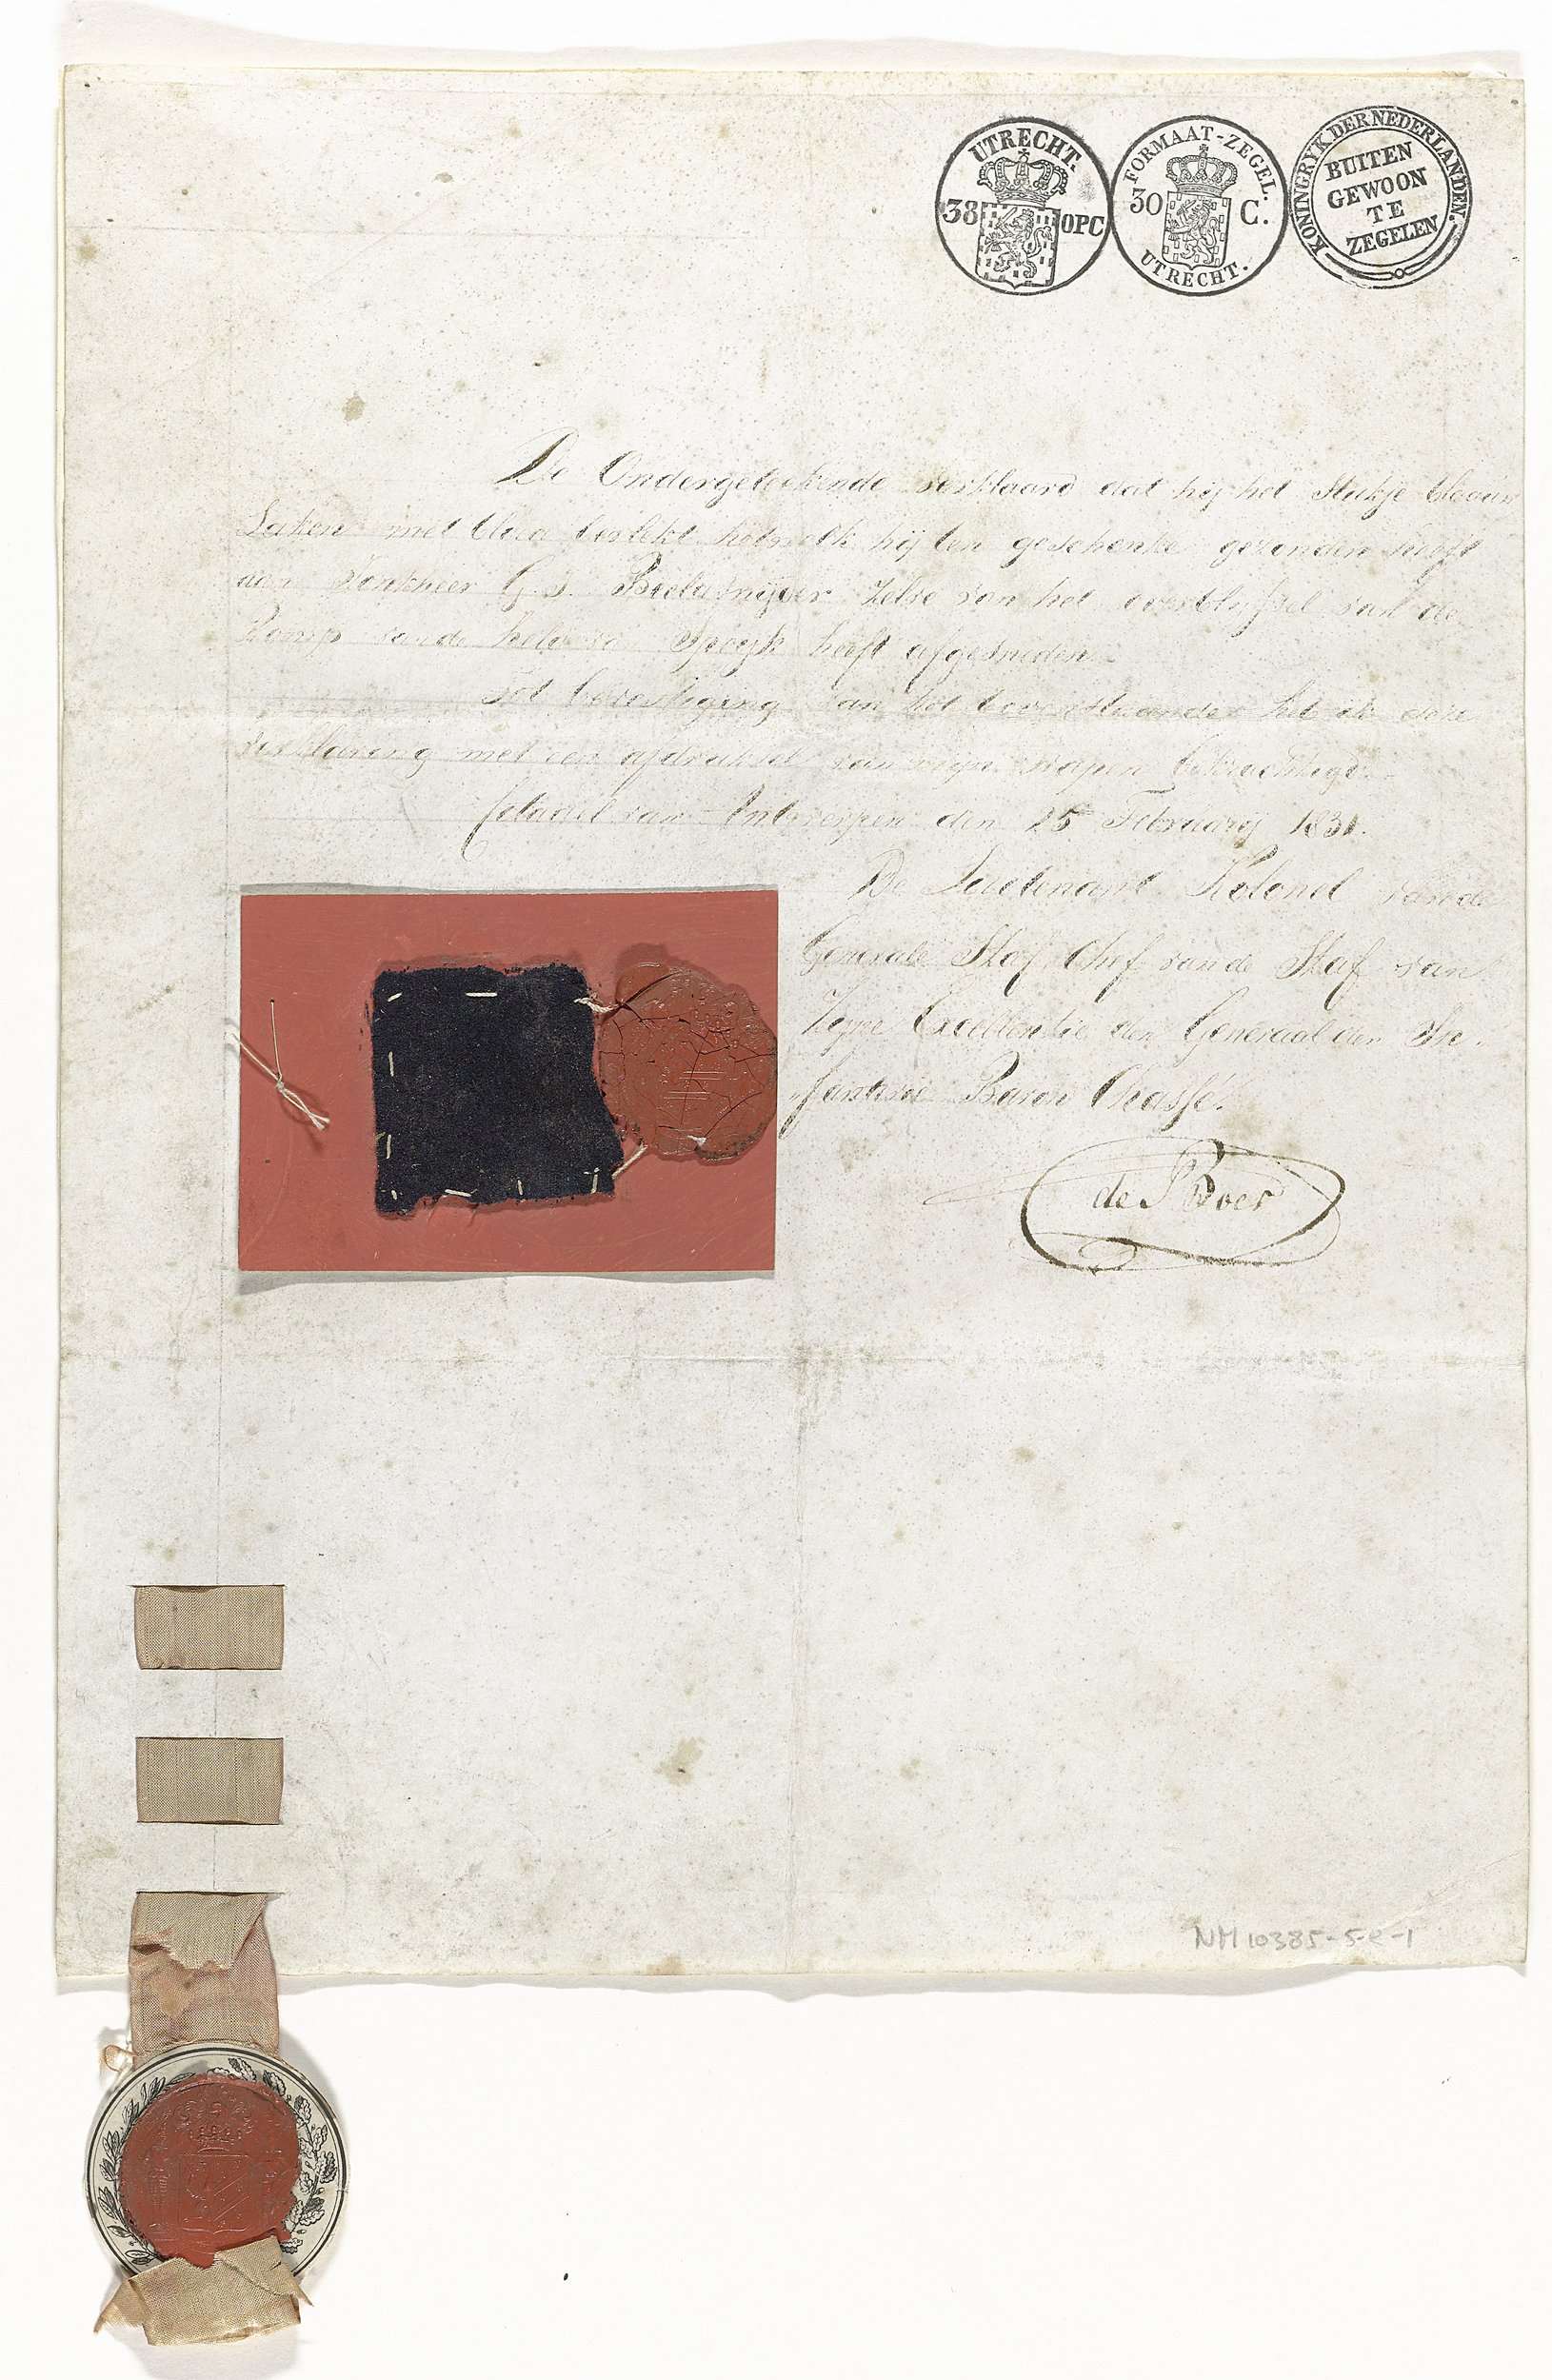 UTRECHT.
38 OPC
FORMAAT-ZEGEL.
30 C.
UTRECHT.
KONINGRYK DER NEDERLANDEN.
BUITEN
GEWOON
TE
ZEGELEN
De Ondergeteekende verklaard dat hij het Stukje blaauw
Laken met bloed bevlekt hetwelk hij ten geschenke gezonden heeft
aan Jonkheer G. J. Beeldsnijder Zelve van het overblijfsel van de
Romp van de held van Speijk heeft afgesneden.
Tot bevestiging van het bovenstaande heb ik deze
verklaring met een afdruksel van mijn wapen bekrachtigd.
Citadel van Antwerpen den 25 Februarij 1831.
De Luitenant Kolonel van de
Generale Staf, Chef van de Staf van
Zijne Excellentie den Generaal der In-
fanterie Baron Chassé.
de Boer
NM 10385-5-e-1